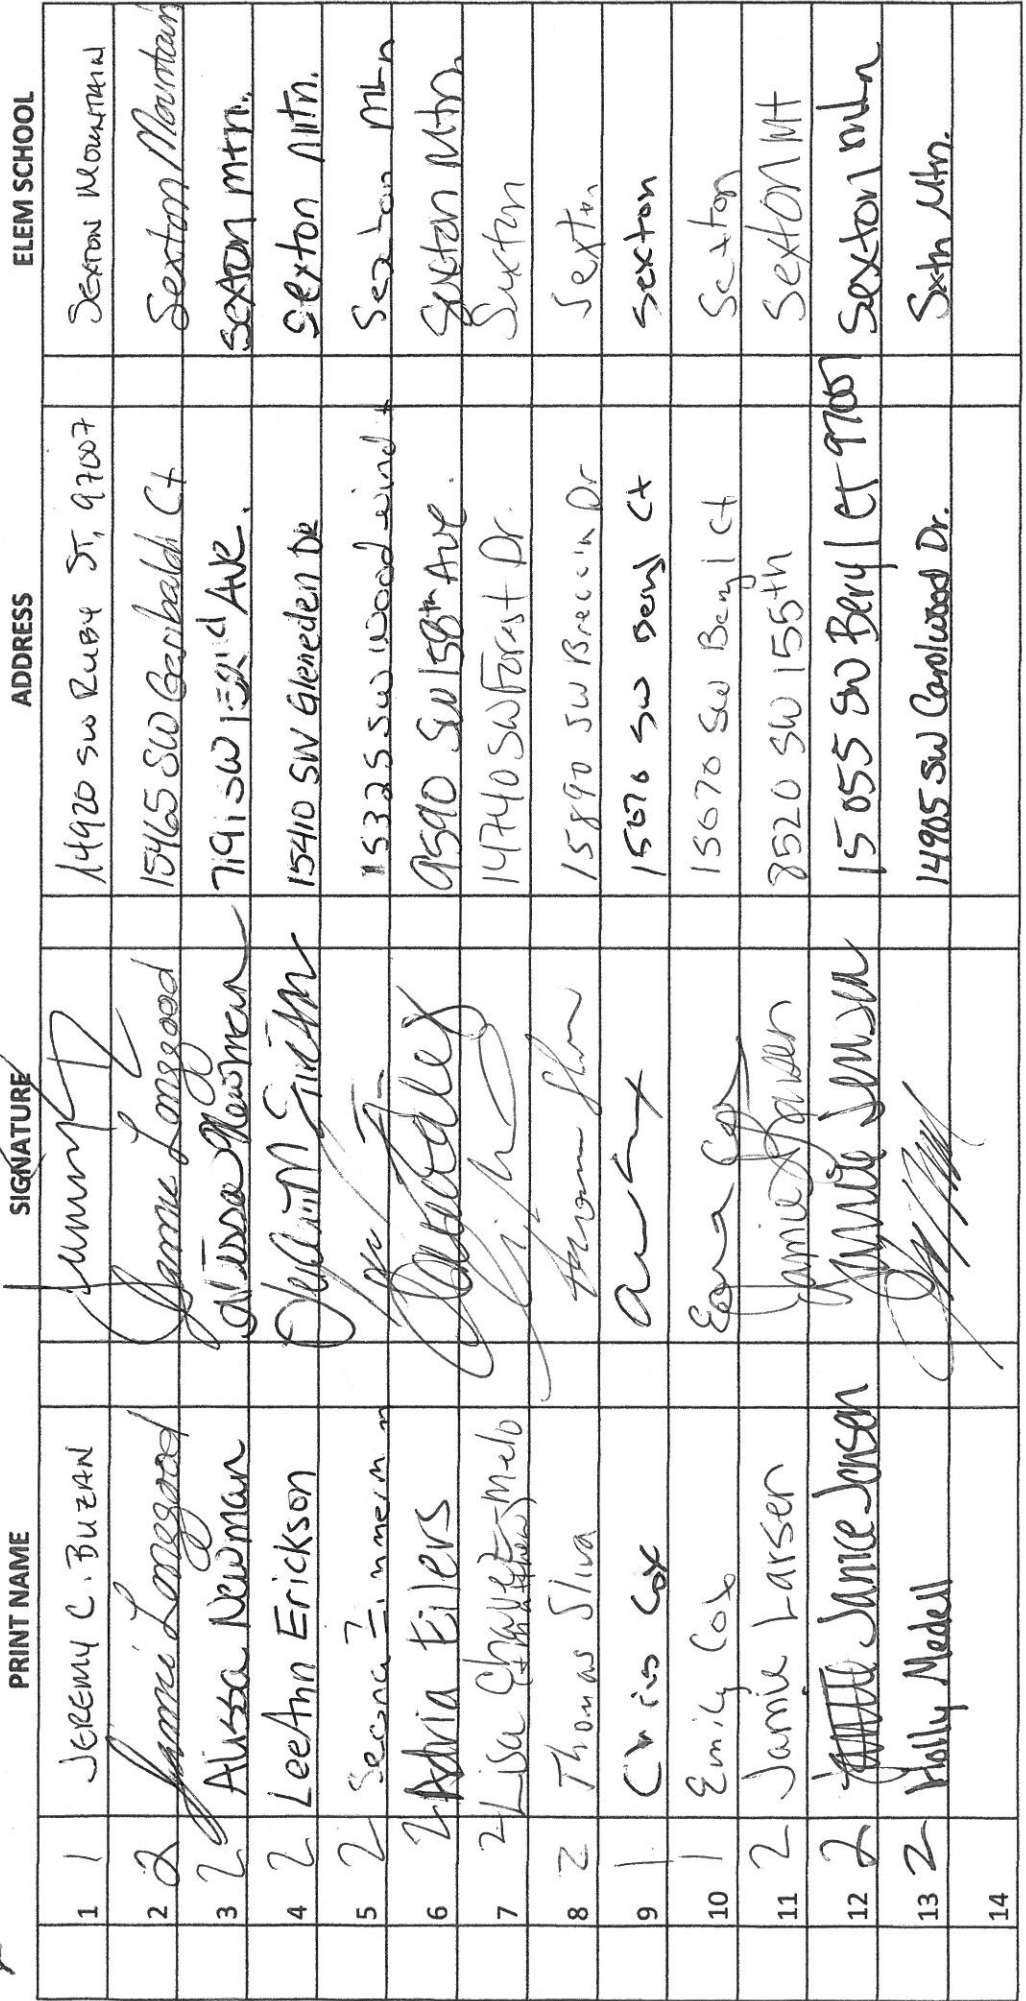 PRINT NAME SIGNATURE ADDRESS ELEM SCHOOL
1 1 JEREMY C. BUZAN 14920 SW RUBY ST, 97007 SEXTON MOUNTAIN
2 2 Jamie Longgood Jamie Longgood 15465 SW Garibaldi Ct Sexton Mountain
3 2 Alissa Newman Alissa Newman SW Ave. Sexton mtn.
4 2 LeeAnn Erickson 15410 SW Gleneden Dr Sexton Mtn.
5 2 15325 SW Woodwind Sexton Mtn
6 2 Adria Eilers 9590 SW 158th Ave. Sexton Mtn
7 2 Lisa 14740 SW Forest Dr. Sexton
8 2 Thomas Sliva 15890 SW Dr Sexton
9 1 Cox SW Beryl Ct Sexton
10 1 Emily Cox 15070 SW Beryl Ct Sexton
11 2 Jamie Larsen Jamie Larsen 8520 SW 155th Sexton Mt
12 2 Janice Jensen Jensen 15055 SW Beryl Ct 97007 Sexton mtn
13 2 Holly Medell 14905 SW Carolwood Dr. Sxtn Mtn.
14